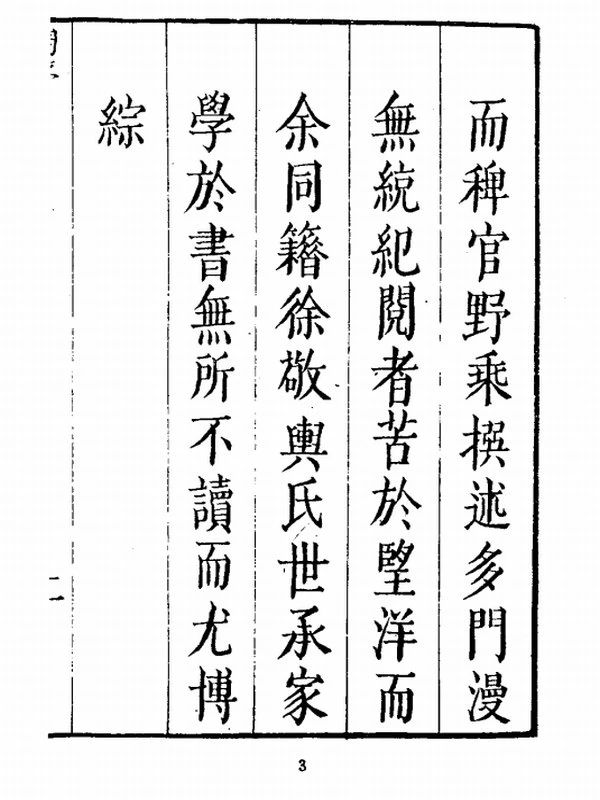 而稗官野乘撰述多門漫
無統紀閱者苦於望洋而
余同籍徐敬輿氏世承家
學於書無所不讀而尤博
綜
3